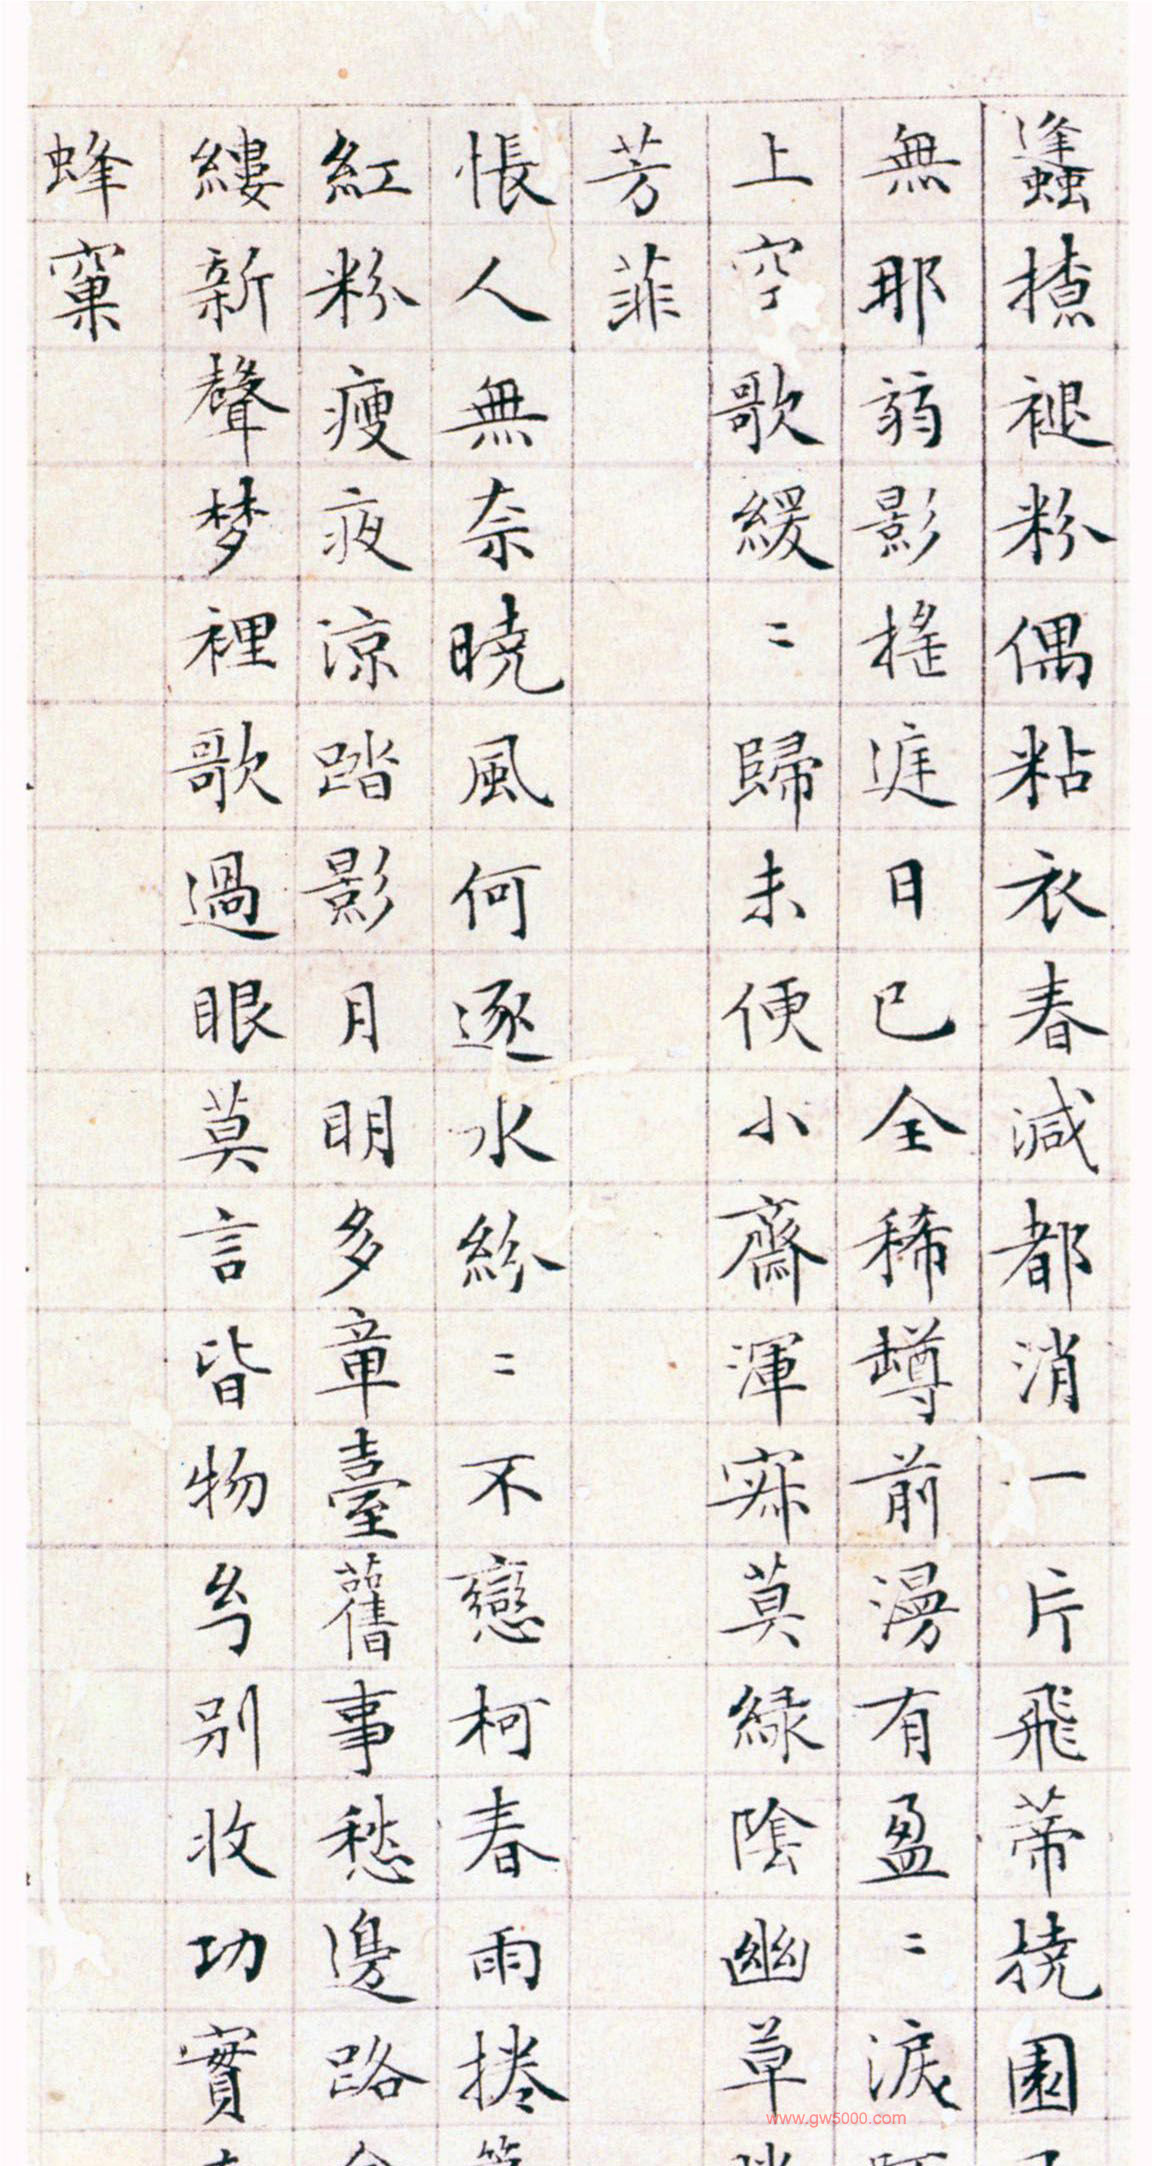 蠭揸褪粉偶粘衣春減都消一片飛蒂撓園
無那弱影搖遅日已全稀罇前漫有盈〻淚
上空歌緩〻歸未便小齋渾寂莫綠陰幽草
芳菲
悵人無奈曉風何逐水紛〻不戀柯春雨捲
紅粉瘦夜涼踏影月明多章臺舊事愁邊路
縷新聲梦裡歌過眼莫言皆物兮別收功實
蜂窠
www.gw5000.com